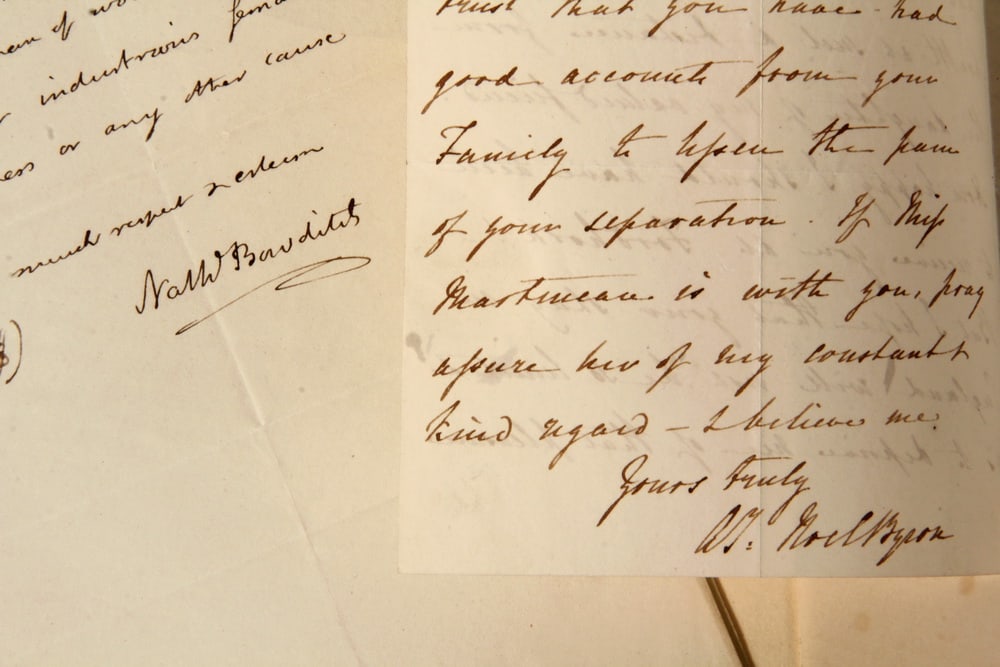 man of
industrious
or any other cause
much respect & esteem
Nath'l Bowditch
trust that you have had
good accounts from your
Family to lessen the pain
of your separation. If Miss
Martineau is with you, pray
assure her of my constant
kind regard – & believe me.
Yours truly
AI: Noel Byron